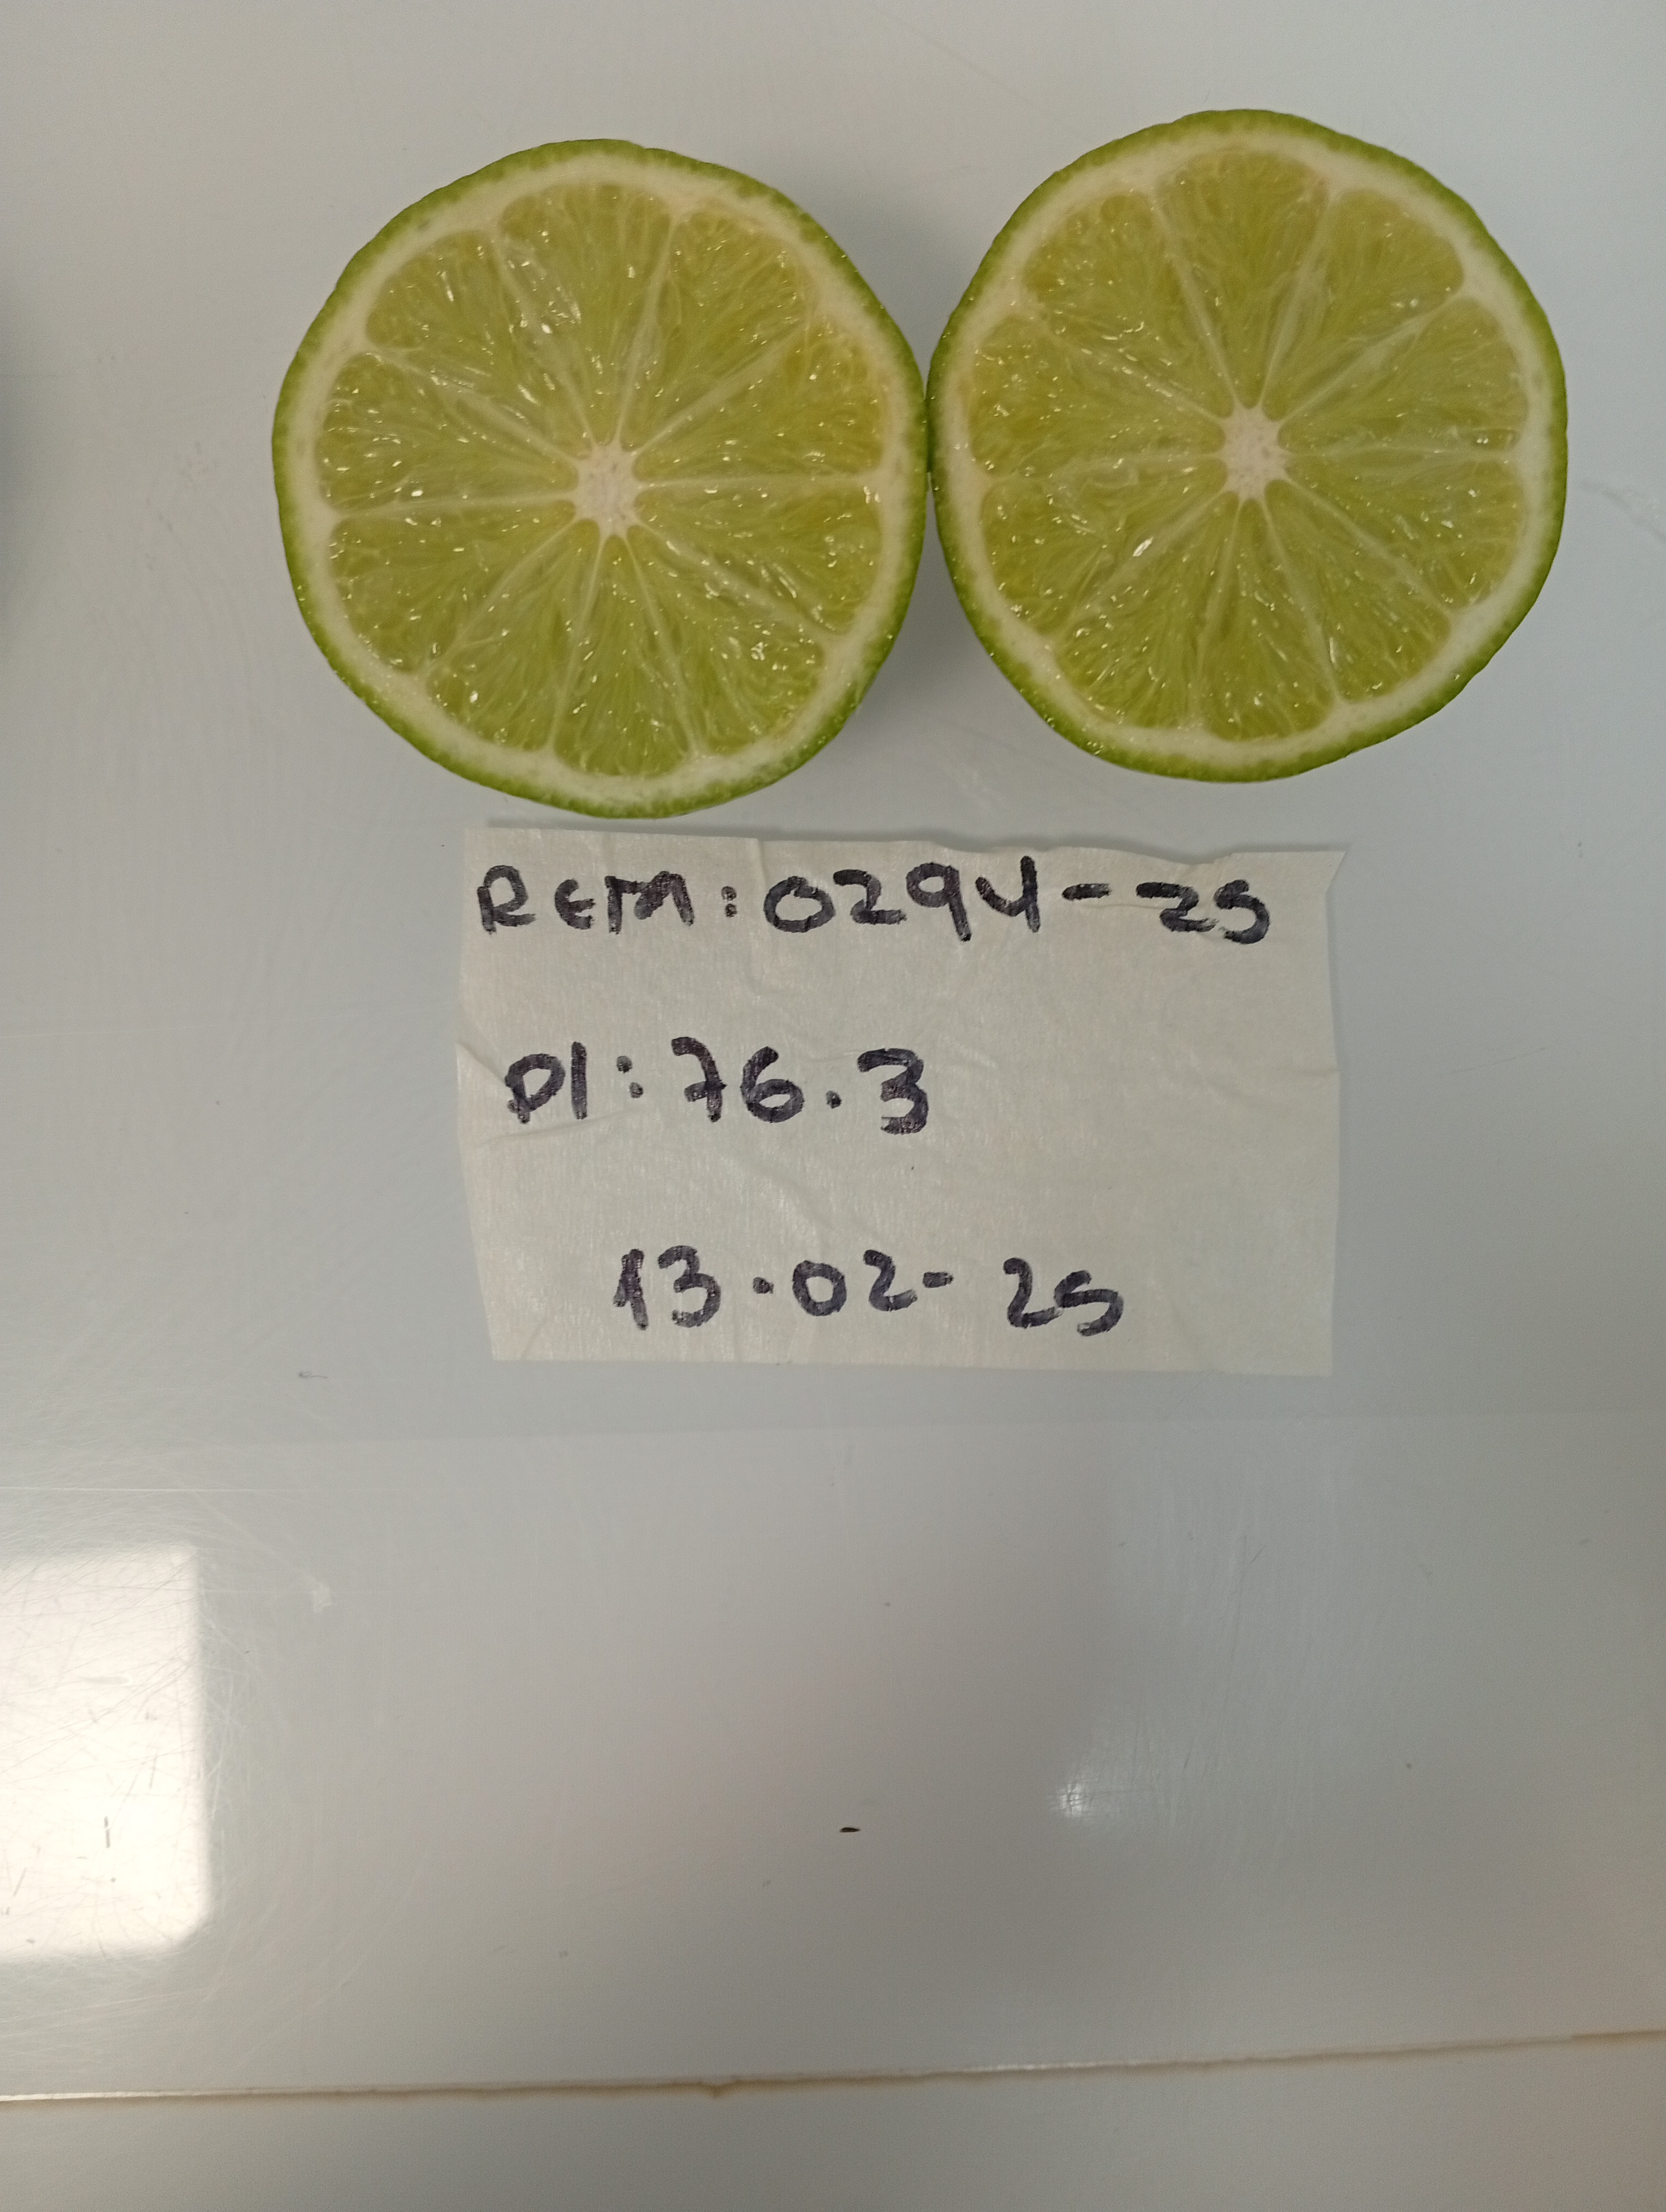 REM: 0294-25
DI: 76.3
13-02-25